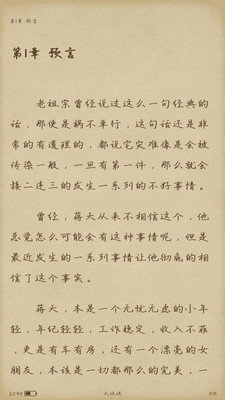 第1章 预言
第1章 预言
老祖宗曾经说过这么一句经典的
话，那便是祸不单行，这句话还是非
常的有道理的，都说它灾难像是会被
传染一般，一旦有第一件，那么就会
接二连三的发生一系列的不好事情。
曾经，蒋天从来不相信这个，他
总觉怎么可能会有这种事情呢，但是
最近发生的一系列事情让他彻底的相
信了这个事实。
蒋天，本是一个无忧无虑的小年
轻，年纪轻轻，工作稳定，收入不菲
，更是有车有房，还有一个漂亮的女
朋友，本该是一切都那么的完美，一
22:48
0%